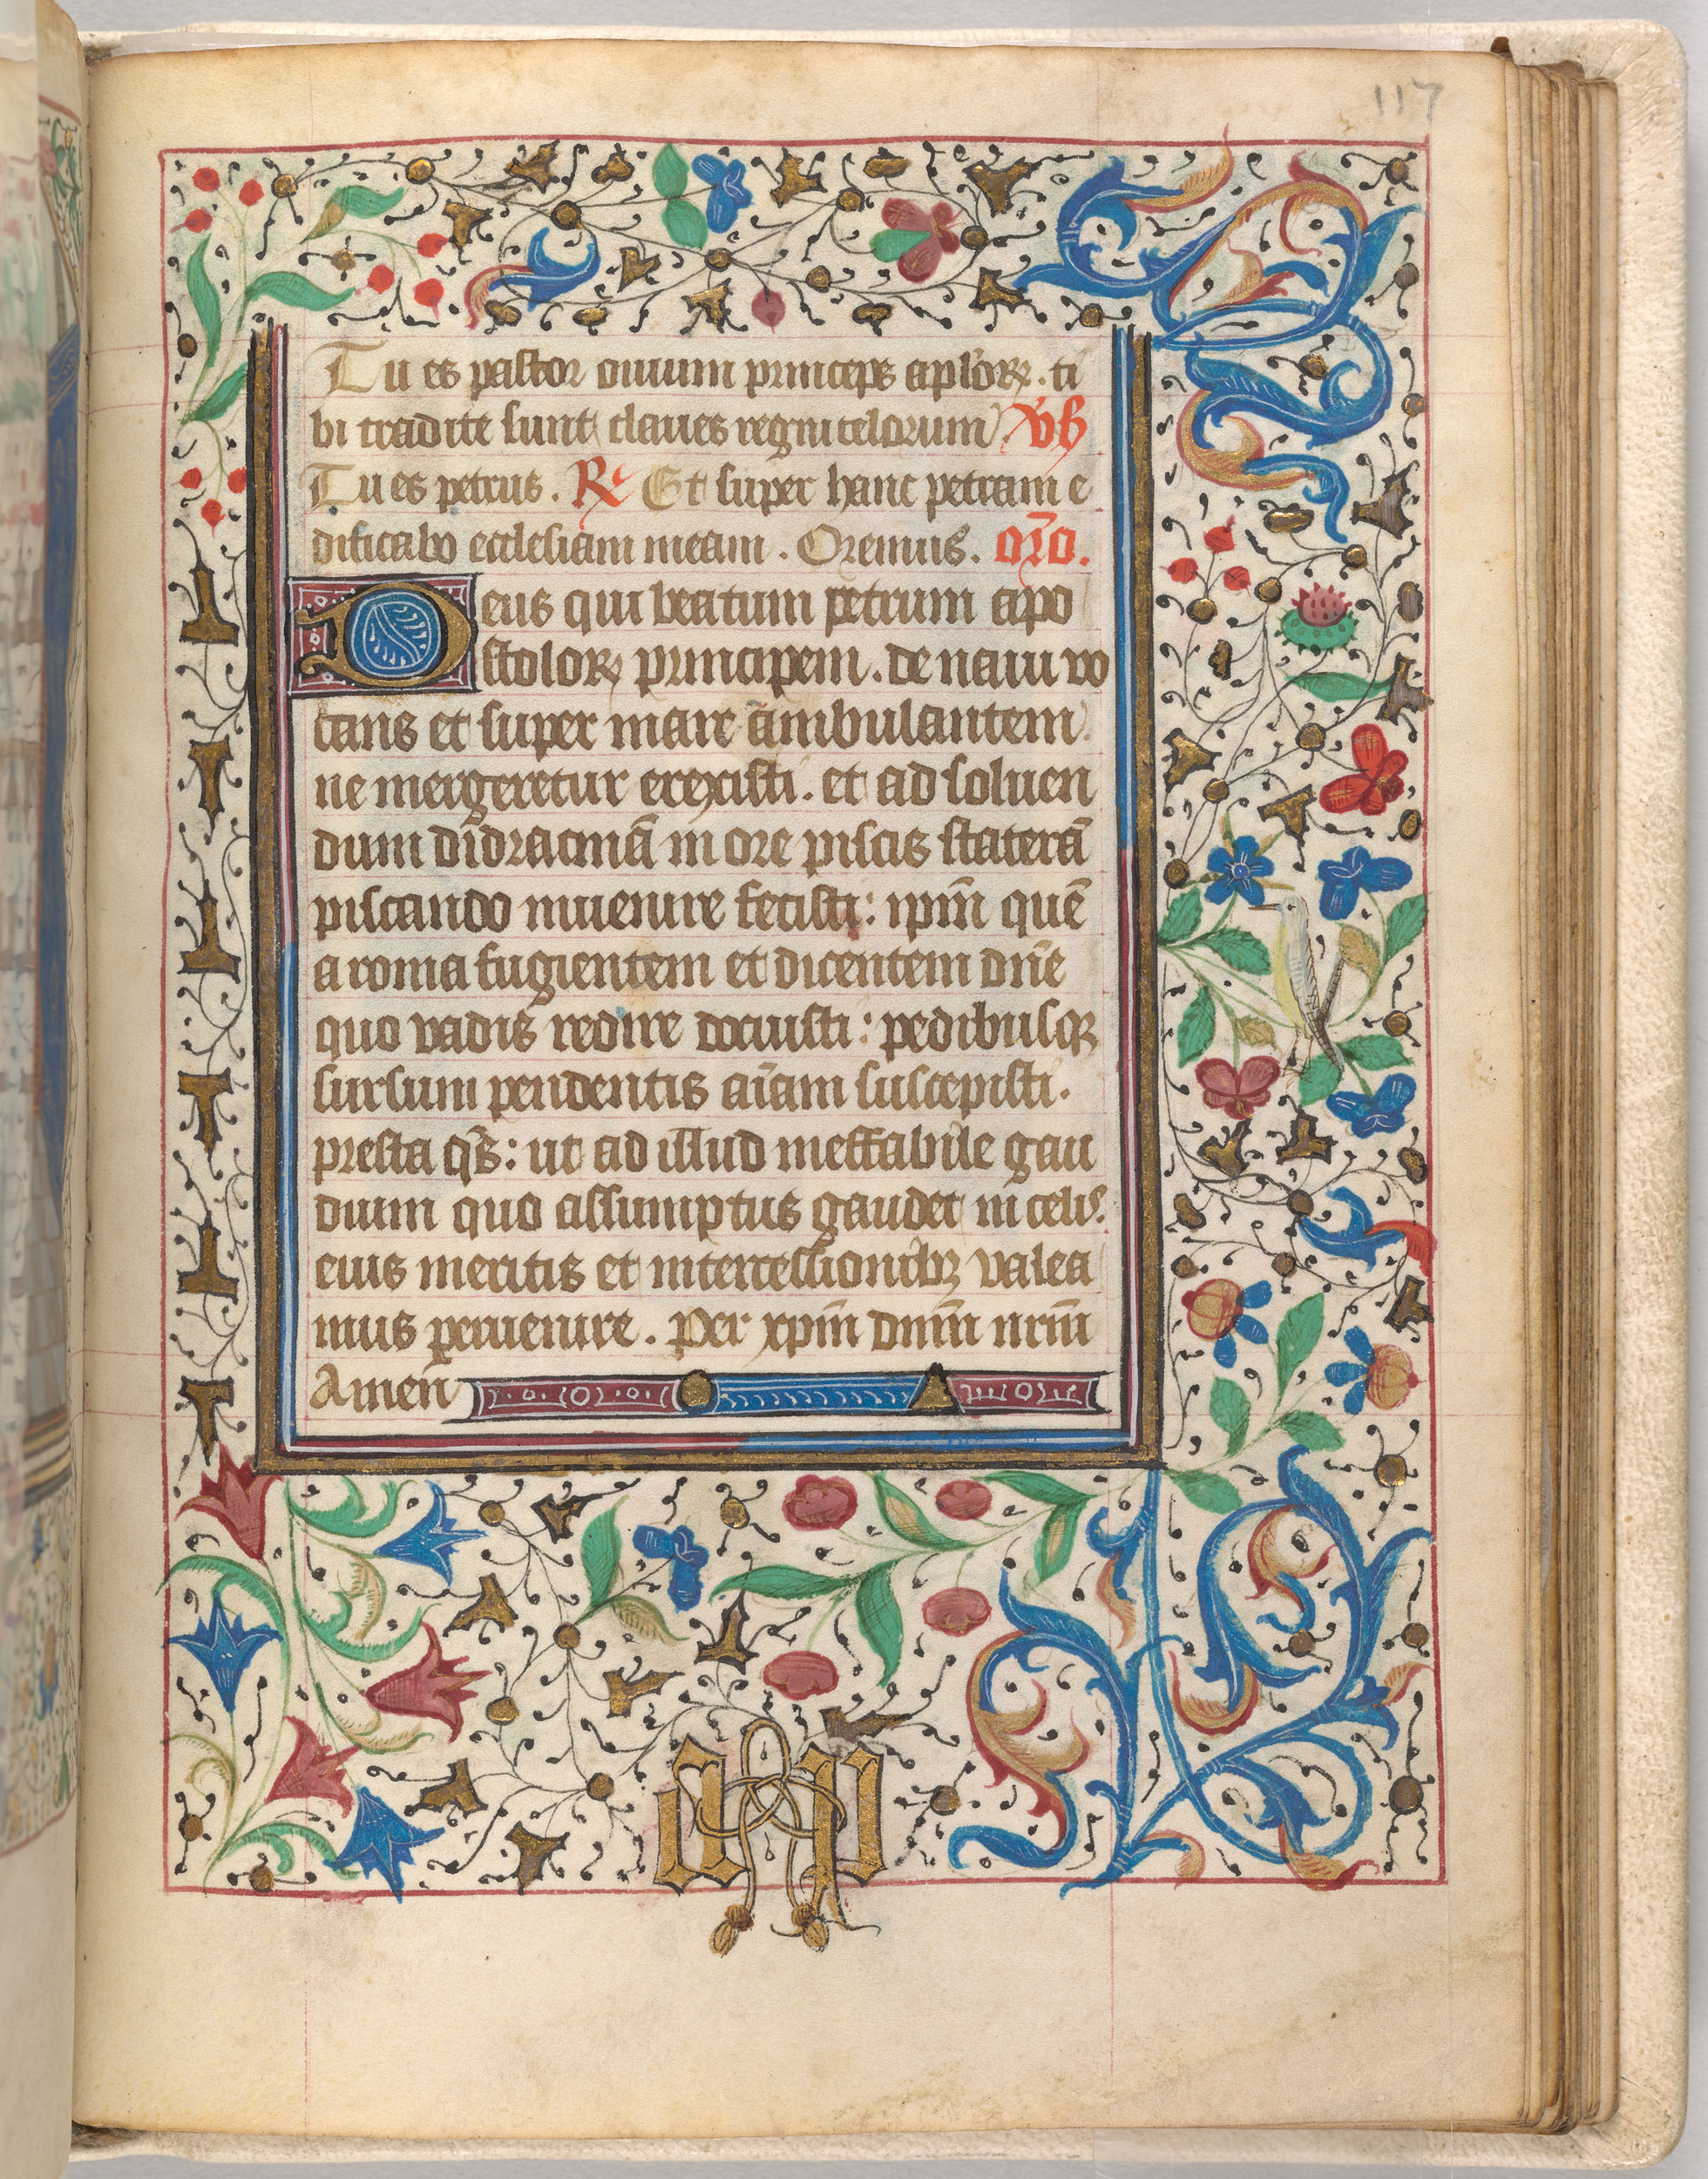 117
Tu es pastor ouium princeps aplorꝝ. ti
bi tradite sunt claues regni celorum. vs
Tu es petrus. ℟ Et super hanc petram e
dificabo ecclesiam meam. Oremus. oro.
Deus qui beatum petrum apo
stolorꝝ principem. de naui vo
cans et super mare ambulantem
ne mergeretur erexisti. et ad soluen
dum didracmā in ore piscis staterā
piscando inuenire fecisti: ipm̄ quē
a roma fugientem et dicentem dn̄e
quo vadis redire docuisti: pedibusqꝫ
sursum pendentis aīam suscepisti.
presta qs̄: ut ad illud ineffabile gau
dium quo assumptus gaudet in celis.
eius meritis et intercessionibꝫ valea
mus ꝑuenire. Per xp̄m dnm̄ nrm̄
Amen